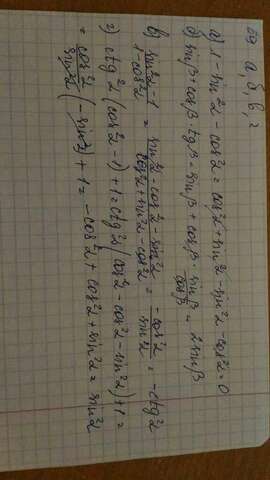 69 а, б, в, г
а) 1 - sin²α - cos²α = cos²α + sin²α - sin²α - cos²α = 0
б) sinβ + cosβ · tgβ = sinβ + cosβ · sinβ/cosβ = 2 sinβ
в) (sin²α - 1)/(1 - cos²α) = (sin²α - cos²α - sin²α)/(cos²α + sin²α - cos²α) = -cos²α/sin²α = -ctg²α
г) ctg²α (cos²α - 1) + 1 = ctg²α (cos²α - cos²α - sin²α) + 1 =
= cos²α/sin²α (-sin²α) + 1 = -cos²α + cos²α + sin²α = sin²α